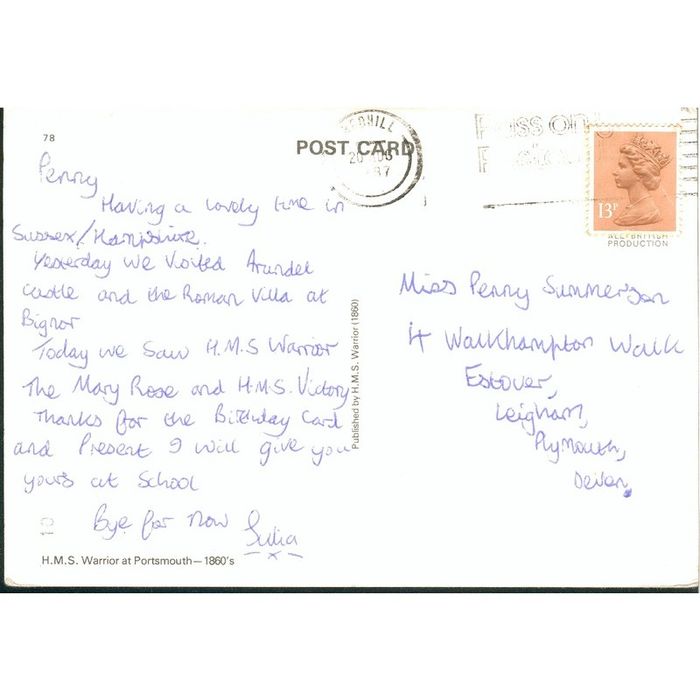 78
POST CARD
Penny
Having a lovely time in
Sussex/Hampshire.
Yesterday we visited Arundel
castle and the Roman Villa at
Bignor
Today we saw H.M.S Warrior
The Mary Rose and H.M.S. Victory
Thanks for the Birthday Card
and Present I will give you
yours at School
Bye for now Julia
x
H.M.S. Warrior at Portsmouth—1860's
Published by H.M.S. Warrior (1860)
20
87
13P
ALL BRITISH
PRODUCTION
Miss Penny Summerson
4 Walkhampton Walk
Estover,
Leigham,
Plymouth,
Devon.